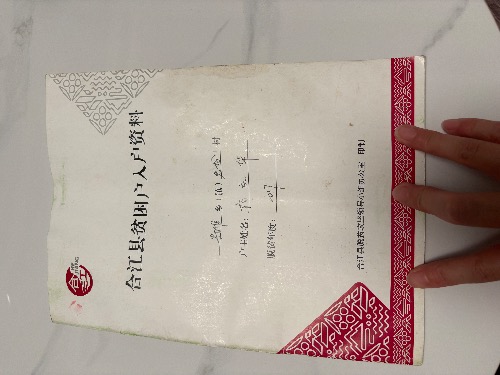 合江县贫困户入户资料
乡(镇) 村
户主姓名:
脱贫年度: 2017
合江县脱贫攻坚领导小组办公室 印制